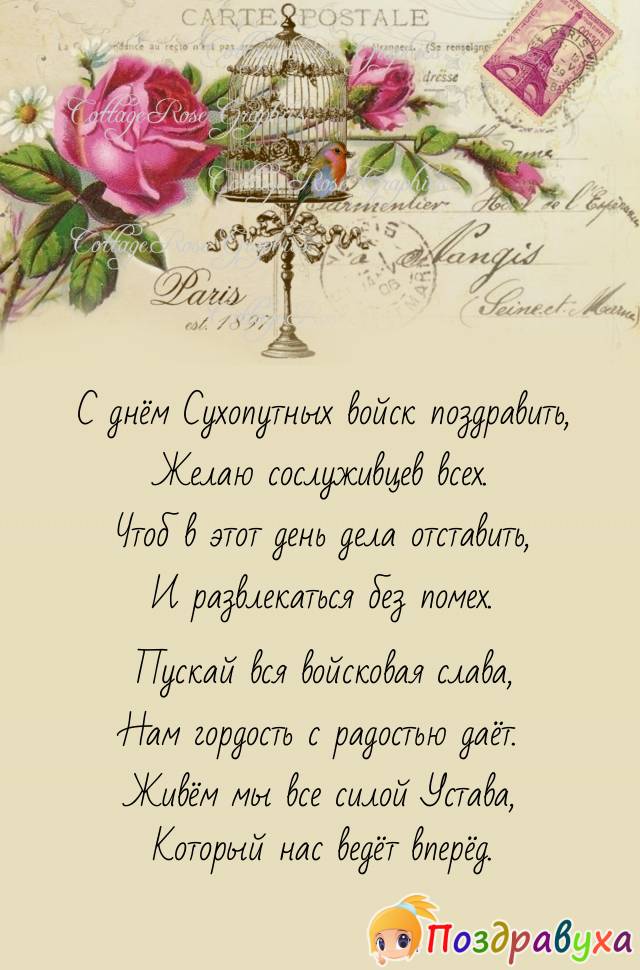 CARTE POSTALE
adresse
PARIS
CottageRoseGraphics
Madame
Parmentier
a Nangis
CottageRoseGraphics
Paris
est. 1897
Seine et Marne
С днём Сухопутных войск поздравить,
Желаю сослуживцев всех.
Чтоб в этот день дела отставить,
И развлекаться без помех.
Пускай вся войсковая слава,
Нам гордость с радостью даёт.
Живём мы все силой Устава,
Который нас ведёт вперёд.
Поздравуха